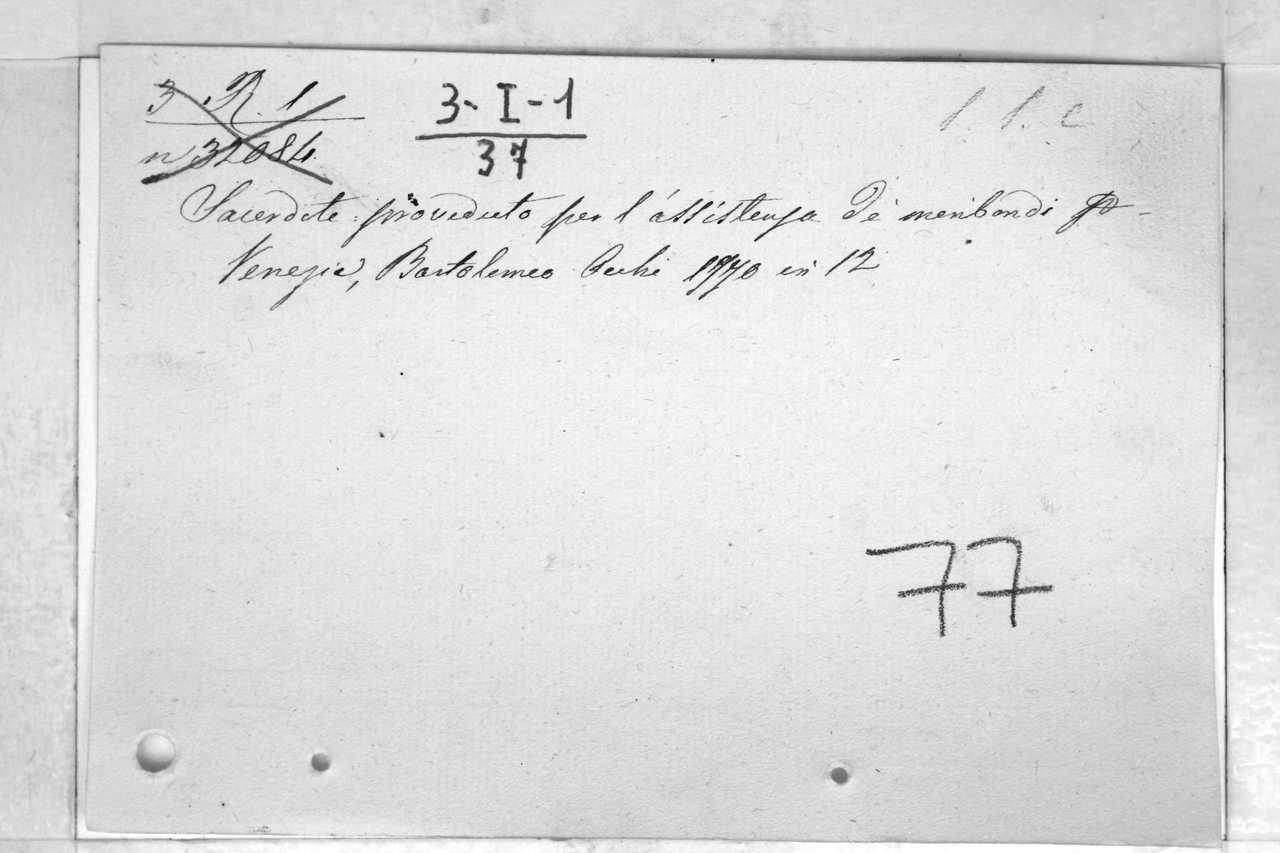 3 R. 1
n 32084
3-I-1
37
1. 1. c
Sacerdote proveduto per l'assistenza de' moribondi
Venezia, Bartolomeo Occhi 1770 in 12
77